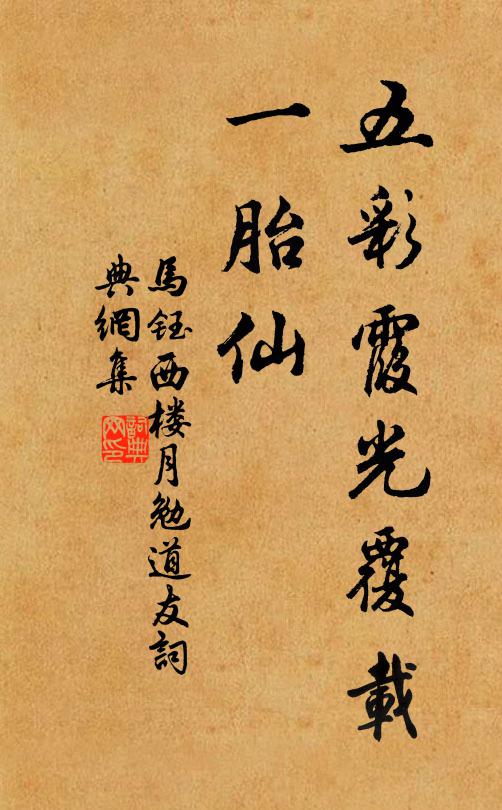 五彩霞光覆載
一胎仙
馬鈺西楼月勉道友詞
典網集
詞典
网印